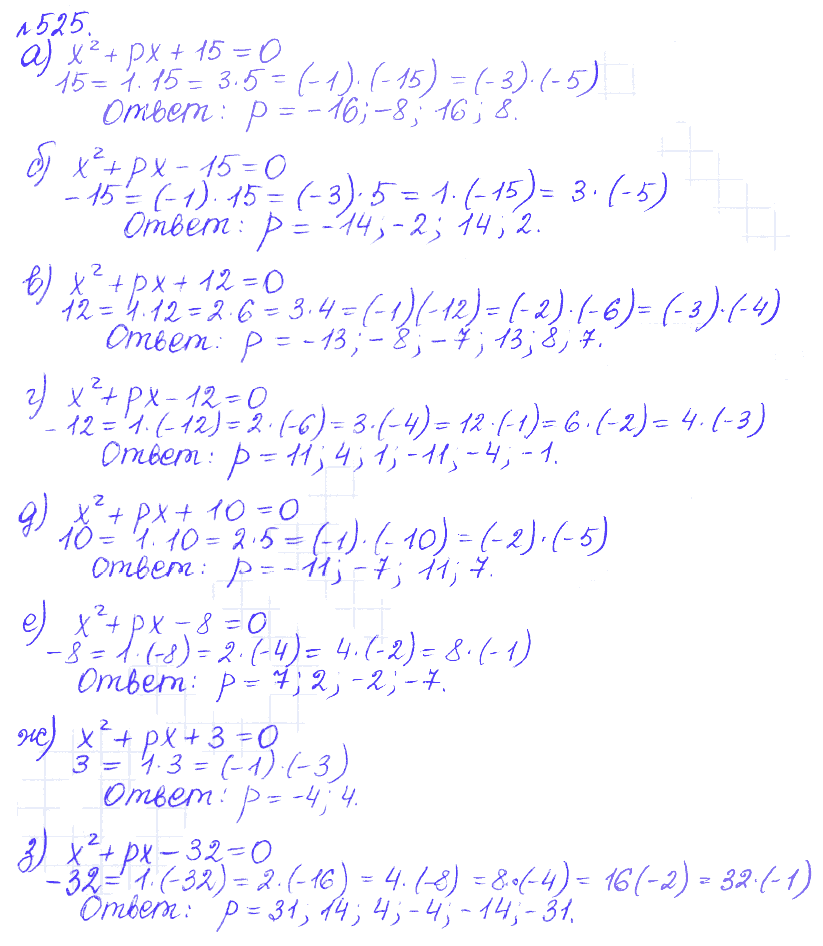 №525.
а) x² + px + 15 = 0
15 = 1·15 = 3·5 = (-1)·(-15) = (-3)·(-5)
Ответ: p = -16; -8; 16; 8.
б) x² + px - 15 = 0
-15 = (-1)·15 = (-3)·5 = 1·(-15) = 3·(-5)
Ответ: p = -14; -2; 14; 2.
в) x² + px + 12 = 0
12 = 1·12 = 2·6 = 3·4 = (-1)(-12) = (-2)·(-6) = (-3)·(-4)
Ответ: p = -13; -8; -7; 13; 8; 7.
г) x² + px - 12 = 0
-12 = 1·(-12) = 2·(-6) = 3·(-4) = 12·(-1) = 6·(-2) = 4·(-3)
Ответ: p = 11; 4; 1; -11; -4; -1.
д) x² + px + 10 = 0
10 = 1·10 = 2·5 = (-1)·(-10) = (-2)·(-5)
Ответ: p = -11; -7; 11; 7.
е) x² + px - 8 = 0
-8 = 1·(-8) = 2·(-4) = 4·(-2) = 8·(-1)
Ответ: p = 7; 2; -2; -7.
ж) x² + px + 3 = 0
3 = 1·3 = (-1)·(-3)
Ответ: p = -4; 4.
з) x² + px - 32 = 0
-32 = 1·(-32) = 2·(-16) = 4·(-8) = 8·(-4) = 16(-2) = 32·(-1)
Ответ: p = 31; 14; 4; -4; -14; -31.